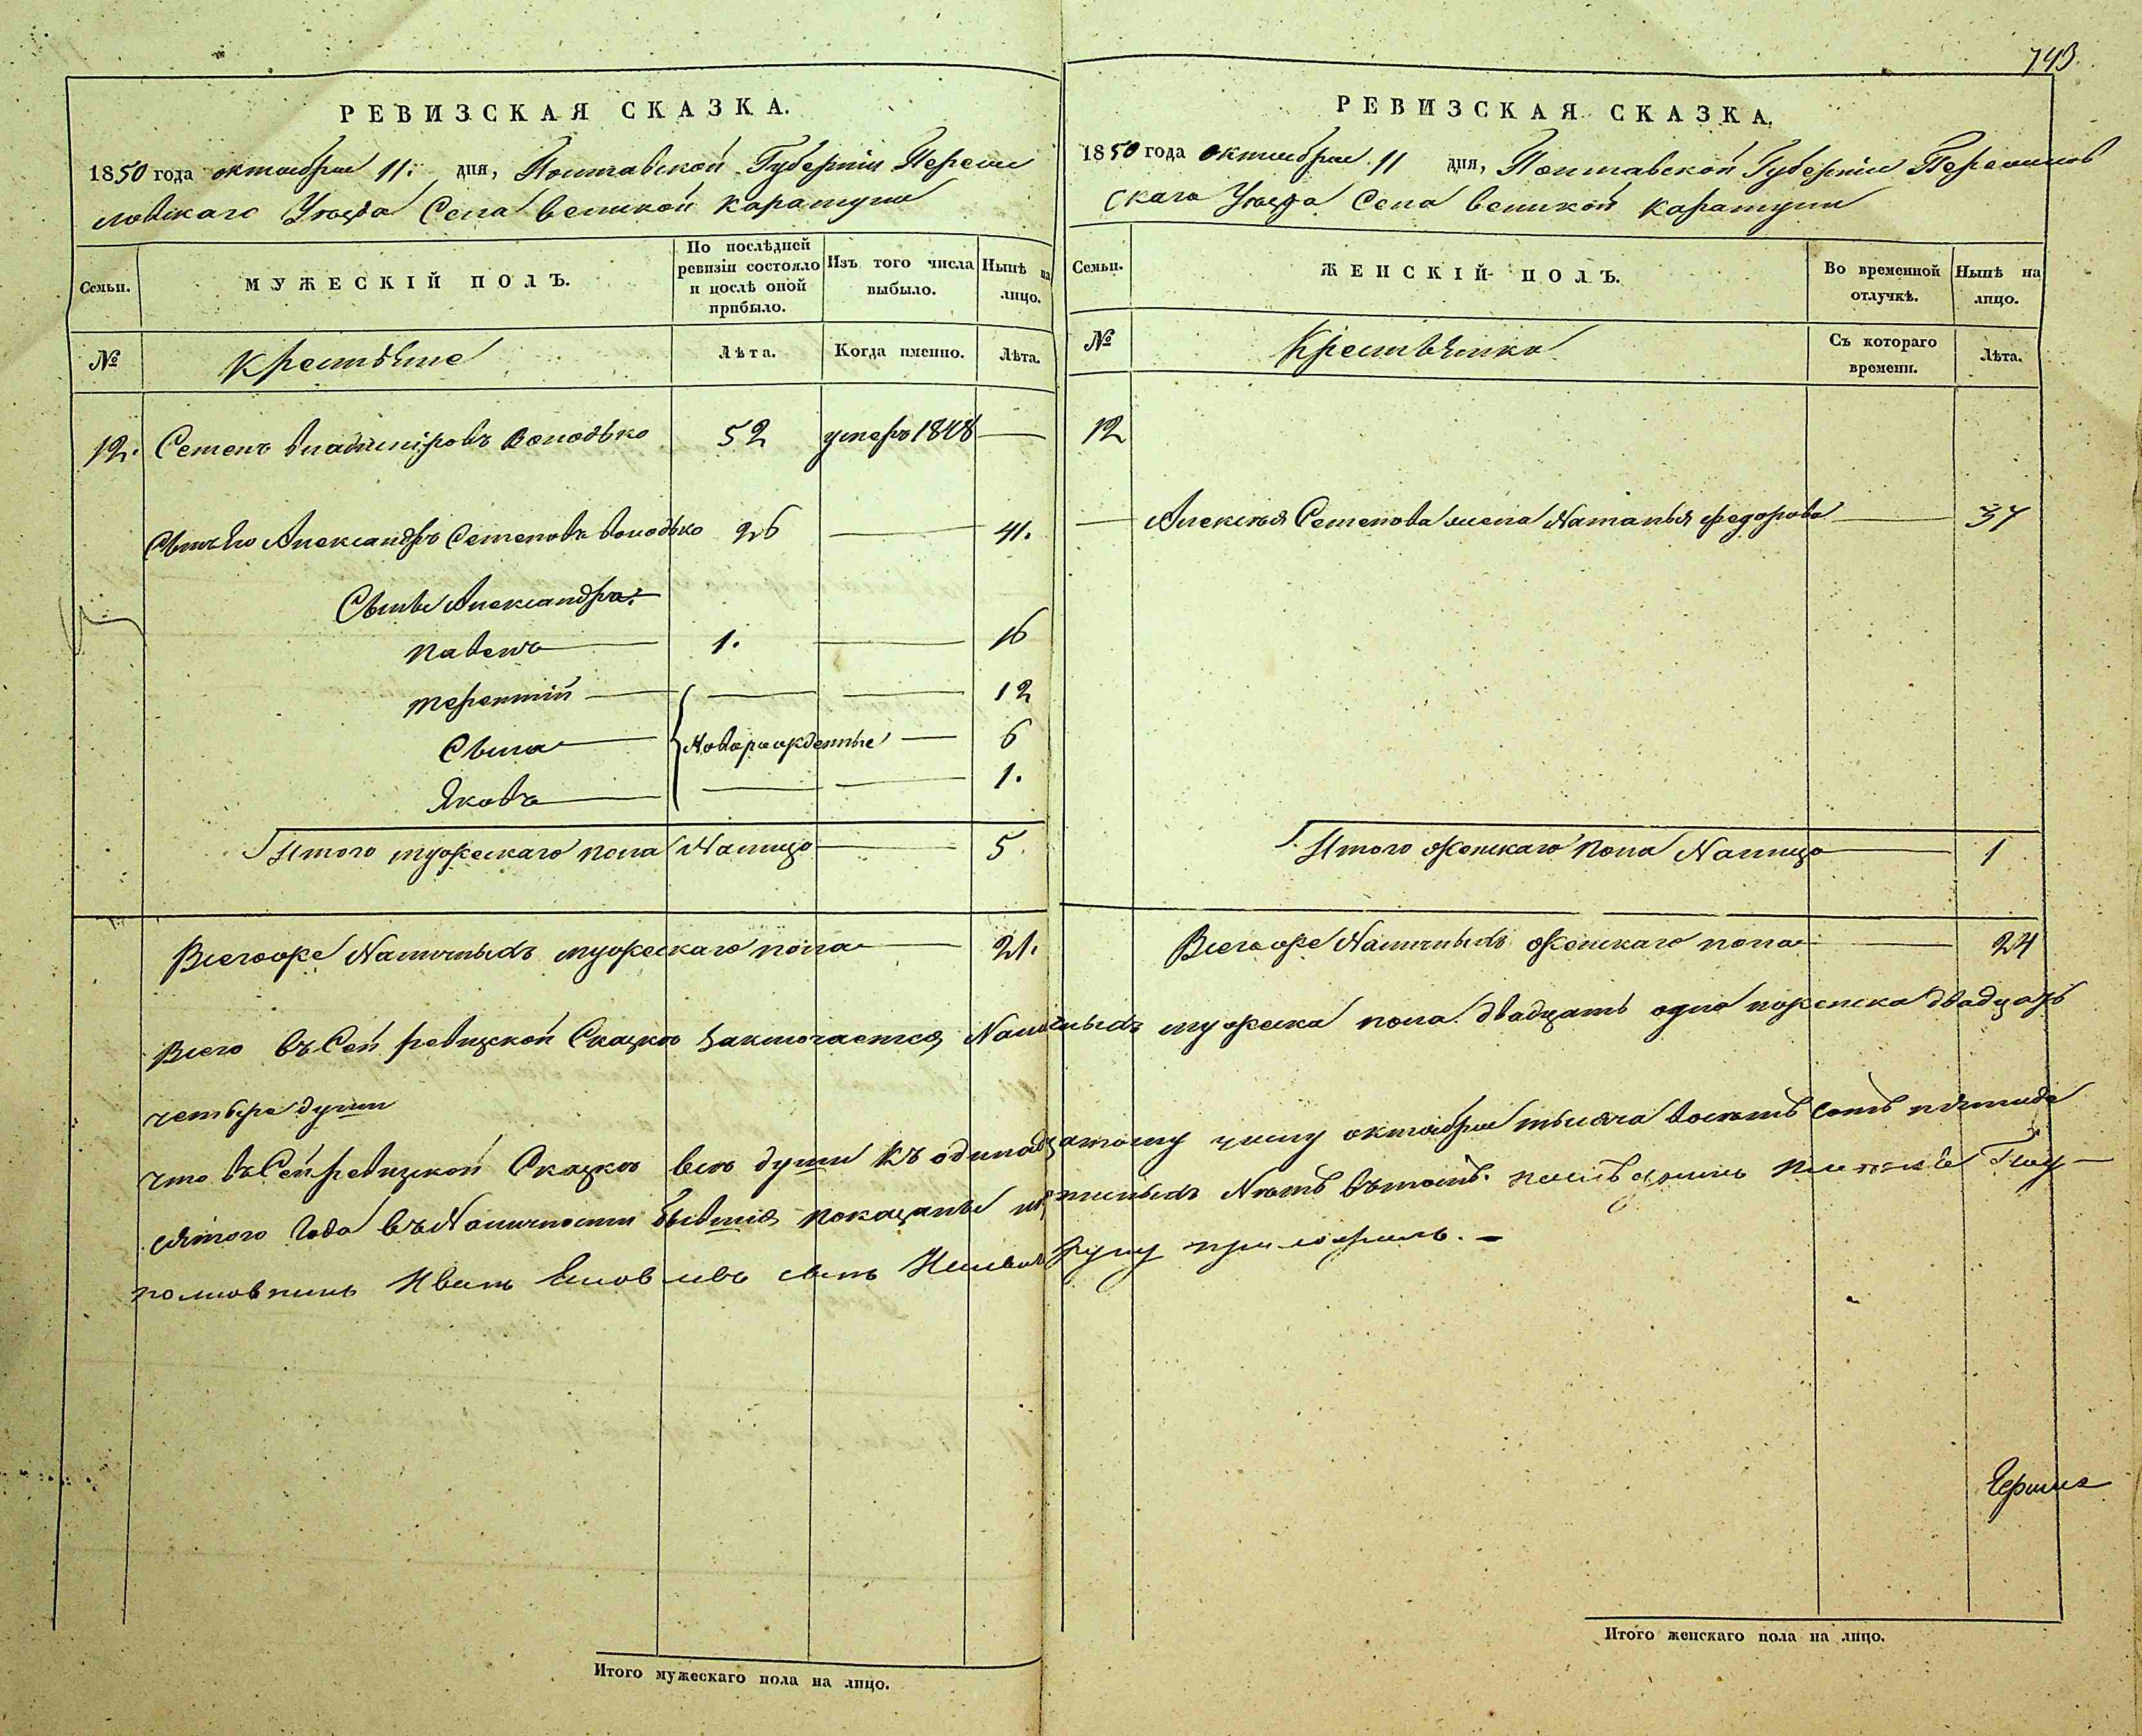 743
РЕВИЗСКАЯ СКАЗКА.
1850 года октября 11: дня, Полтавской Губернiи Переяс
ловскаго Уѣзда Села великой каратули
Семьи.
МУЖЕСКІЙ ПОЛЪ.
По послѣдней ревизіи состояло и послѣ оной прибыло.
Изъ того числа выбыло.
Нынѣ на лицо.
№
крестьяне
Лѣта.
Когда именно.
Лѣта.
12. Семенъ владимiровъ володько 52 умеръ 1848 —
Сынъ Его Александръ Семеновъ володько 26 — 41.
Сыны Александра:
павелъ 1. — 16
терентiй — — 12
Сыла Новорожденные — 6
Яковъ — — 1.
Итого мужескаго пола Налицо 5
Всегоже Наличныхъ мужескаго пола 21.
РЕВИЗСКАЯ СКАЗКА.
1850 года октября 11 дня, Полтавской Губернiи Переяслов
скаго Уѣзда Села великой каратули
Семьи.
ЖЕНСКІЙ ПОЛЪ.
Во временной отлучкѣ.
Нынѣ на лицо.
№
Крестьянка
Съ котораго времени.
Лѣта.
12
— Александра Семенова жена Наталья федорова — 37
Итого женскаго пола Налицо 1
Всегоже Наличныхъ женскаго пола 24
Всего въ Сей ревизкой Сказкѣ Заключается Наличныхъ мужеска пола двадцать одна иженска двадцать
четыре души
что въ Сей ревизкой Сказкѣ всѣ души Къ одинадцатому числу октября тысяча восемь сотъ пятиде
сятого Года въ Наличности бывшiя показаны ипрописныхъ Нѣтъ вътомъ
полковникъ Иванъ руку приложилъ. —
Итого мужескаго пола на лицо.
Итого женскаго пола на лицо.